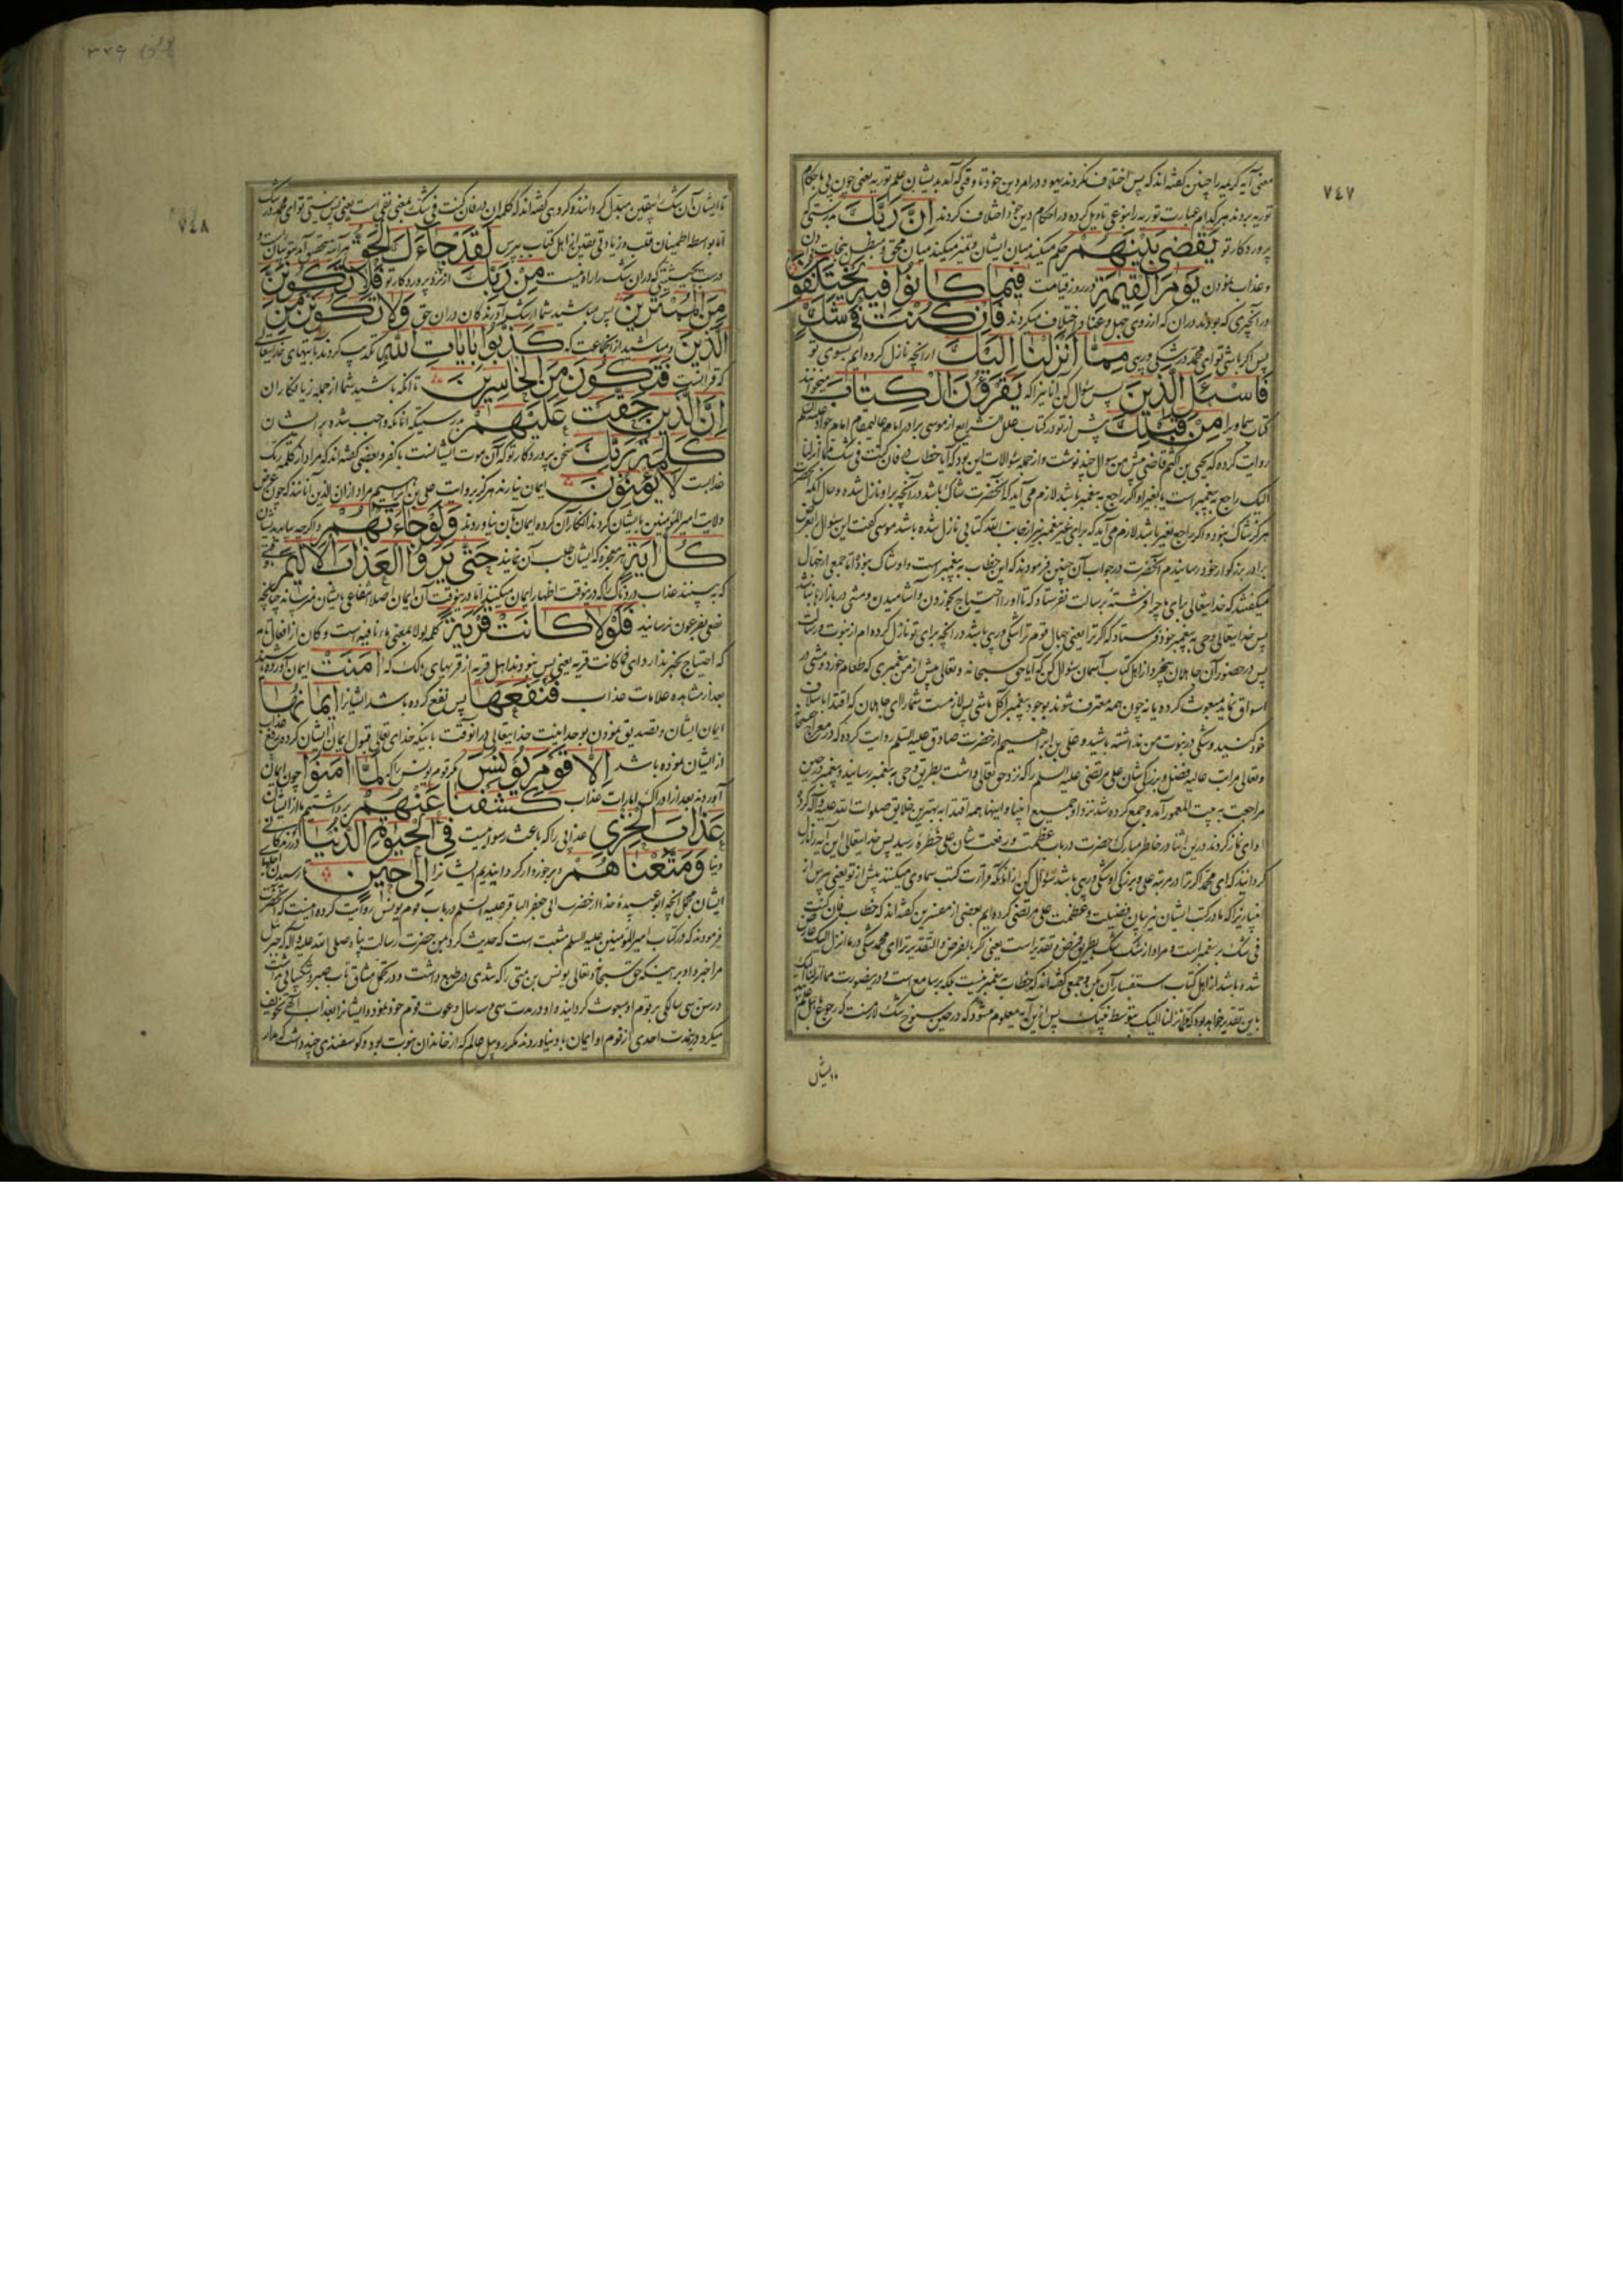 ٧٤٧
معنی آیه کریمه را چنین گفته اند که پس اختلاف نکردند یهود در امر دین خود تا وقتی که آمد بدیشان علم توریه یعنی چون پی باحکام
توریه بردند هر کدام عبارت توریه را بنوعی تاویل کرده در احکام دین خود اختلاف کردند اِنَّ رَبَّكَ بدرستی که
پروردگار تو يَقْضِي بَيْنَهُمْ حکم میکند میان ایشان و تمیز میکند میان محق و مبطل بنجات دادن
و عذاب نمودن يَوْمَ الْقِيٰمَةِ در روز قیامت فِيمَا كَانُوا فِيهِ يَخْتَلِفُونَ
در آنچیزی که بودند در آن که از روی جهل و عناد اختلاف میکردند فَاِنْ كُنْتَ فِي شَكٍّ
پس اگر باشی تو ای محمد در شکی و ریبی مِمَّا اَنْزَلْنَا اِلَيْكَ از آنچه نازل کرده ایم بسوی تو
فَاسْئَلِ الَّذِينَ پس سؤال کن آنانیرا که يَقْرَؤُنَ الْكِتَابَ میخوانند
کتاب سماویرا مِنْ قَبْلِكَ پیش از تو در کتاب علل الشرایع از موسی برادر امام عالیمقام امام جواد علیه السلم
روایت کرده که یحیی بن اکثم قاضی پیش من سوال چند نوشت و از جمله سؤالات این بود که آیا خطاب فان کنت فی شک مما انزلنا
الیک راجع به پیغمبر است یا بغیر او اگر راجع به پیغمبر باشد لازم می آید که آنحضرت شاک باشد در آنچه براو نازل شده و حال آنکه آنحضرت
هرگز شاک نبود و اگر راجع بغیر باشد لازم می آید که برای غیر پیغمبر نیز از جانب الله کتابی نازل شده باشد موسی گفت این سؤال را بعرض
برادر بزرگوار خود رسانیدم آنحضرت در جواب آن چنین فرمودند که این خطاب به پیغمبر است و او شاک نبود اما جمعی از جهال
میگفتند که خدایتعالی برای ما چرا فرشتهٔ برسالت نفرستاد که تا او را احتیاج بخوردن و آشامیدن و مشی در بازارها نباشد
پس خدایتعالی وحی به پیغمبر خود فرستاد که اگر ترا یعنی جهال قوم ترا شکی و ریبی باشد در آنچه برای تو نازل کرده ام از نبوت و رسالت
پس در حضور آن جاهلان بیخرد از اهل کتاب آسمان سؤال کن که آیا حق سبحانه و تعالی پیش از من پیغمبری که طعام خورد و مشی در
اسواق نماید مبعوث کرده یا نه چون همه معترف شوند بوجود پیغمبر آکل ماشی پس لازمست شما را ای جاهلان که اقتدا باسلاف
خود کنید و شکی در نبوت من نداشته باشید و علی بن ابراهیم از حضرت صادق علیه السلم روایت کرده که در معراج
و تعالی مراتب عالیه فضل و بزرگی شان علی مرتضی علیه السلم را که نزد حق تعالی داشت بطریق وحی به پیغمبر رسانید و پیغمبر در حین
مراجعت به بیت المعمور آمد و جمع کرده شد نزد او جمیع انبیا و اینها همه اقتدا به بهترین خلایق صلوات الله علیه و آله کرد
ادای نماز کردند در این اثنا در خاطر مبارک حضرت در باب عظمت و رفعت شان علی خطرهٔ رسید پس خدایتعالی این آیه را نازل
گردانید که ای محمد اگر ترا در مرتبه علی و بزرگی او شکی و ریبی باشد سؤال کن از آنانکه قراءت کتب سماوی میکنند پیش از تو یعنی بپرس از
انبیا زیرا که ما در کتب ایشان نیز بیان فضیلت و عظمت علی مرتضی کرده ایم بعضی از مفسرین گفته اند که خطاب فان کنت
فی شک بر پیغمبر است و مراد از شک شک بطریق فرض و تقدیر است یعنی اگر بالفرض و التقدیر ترا ای محمد شکی در ما انزل الیک
شده باشد از اهل کتاب استفسار آن کن و جمعی گفته اند که خطاب به پیغمبر نیست بلکه بر سامع است و در اینصورت مما انزلنا الیک
باین تقدیر خواهد بود که مما انزلنا الیک بتوسط نبیک پس ازین آیه معلوم میشود که در حین سنوح شک لازمست که رجوع باهل علم
تا ایشان
٧٤٨
تا ایشان آن شک را بیقین مبدل گردانند و گروهی گفته اند که کلمه ان در فان کنت فی شک بمعنی نفی است یعنی پس نیستی تو ای محمد در شک
اما بواسطه اطمینان قلب و زیادتی یقین از اهل کتاب بپرس لَقَدْ جَاءَكَ الْحَقُّ
در آن شک را راه نیست مِنْ رَبِّكَ از نزد پروردگار تو فَلَا تَكُونَنَّ
مِنَ الْمُمْتَرِينَ پس مباشید شما از شک آورندگان در آن حق وَلَا تَكُونَنَّ مِنَ
الَّذِينَ و مباشید از آنجماعت که كَذَّبُوا بِاٰيَاتِ اللّٰهِ تکذیب کردند بآیتهای خدایتعالی
که قرآنست فَتَكُونَ مِنَ الْخَاسِرِينَ تا آنکه باشید شما از جمله زیانکاران
اِنَّ الَّذِينَ حَقَّتْ عَلَيْهِمْ بدرستیکه آنانکه واجب شده بر ایشان
كَلِمَةُ رَبِّكَ سخن پروردگار تو که آن موت ایشانست با کفر و بعضی گفته اند که مراد از کلمه ربک
عذابست لَا يُؤْمِنُونَ ایمان نیارند هرگز بروایت علی بن ابراهیم مراد از ان الذین آنانند که چون عرض
ولایت امیر المؤمنین بایشان کردند انکار آن کرده ایمان بآن نیاوردند وَلَوْ جَاءَتْهُمْ و اگر چه بیاید بدیشان
كُلُّ اٰيَةٍ هر معجزه که ایشان طلب آن نمایند حَتّٰى يَرَوُا الْعَذَابَ الْاَلِيمَ تا وقتی
که ببینند عذاب دردناک را که در آنوقت اظهار ایمان میکنند اما در آنوقت آن ایمان اصلا انتفاعی بایشان نمیرساند چنانچه
نفعی بفرعون نرسانید فَلَوْلَا كَانَتْ قَرْيَةٌ کلمه لولا بمعنی ما نافیه است و کان از افعال تامه
که احتیاج بخبر ندارد ای فما کانت قریه یعنی پس نبودند اهل قریه از قریهای هالک که اٰمَنَتْ ایمان آورده باشند
بعد از مشاهده علامات عذاب فَنَفَعَهَا پس نفع کرده باشد ایشانرا اِيمَانُهَا
ایمان ایشان و تصدیق نمودن بوحدانیت خدایتعالی در آنوقت باینکه خدای تعالی قبول ایمان ایشان کرده رفع عذاب
از ایشان نموده باشد اِلَّا قَوْمَ يُونُسَ مگر قوم یونس را که لَمَّا اٰمَنُوا چون ایمان
آوردند بعد از ادراک امارات عذاب كَشَفْنَا عَنْهُمْ برداشتیم ما از ایشان
عَذَابَ الْخِزْيِ عذابی را که باعث رسوائیست فِي الْحَيٰوةِ الدُّنْيَا در زندگانی
دنیا وَمَتَّعْنَاهُمْ و برخوردار گردانیدیم ایشانرا اِلٰى حِينٍ تا رسیدن اجلهای
ایشان مجمل آنچه ابو عبیدهٔ حذا از حضرت ابی جعفر الباقر علیه السلم در باب قوم یونس روایت کرده اینست که آنحضرت
فرمودند که در کتاب امیر المؤمنین علیه السلم مثبت است که حدیث کرد بمن حضرت رسالت پناه صلی الله علیه و آله که جبرئیل
مرا خبر داد براینکه حق سبحانه و تعالی یونس بن متی را که تندی در طبع داشت و در تحمل مشاق تاب صبر و شکیبائی نداشت
در سن سی سالگی بر قوم او مبعوث گردانید و او در مدت سی و سه سال دعوت قوم خود نمود و ایشانرا بعذاب الهی تخویف
میکرد در اینمدت احدی از قوم او ایمان باو نیاوردند مگر روبیل عالم که از خاندان نبوت بود و گوسفندی چند داشت که مدار